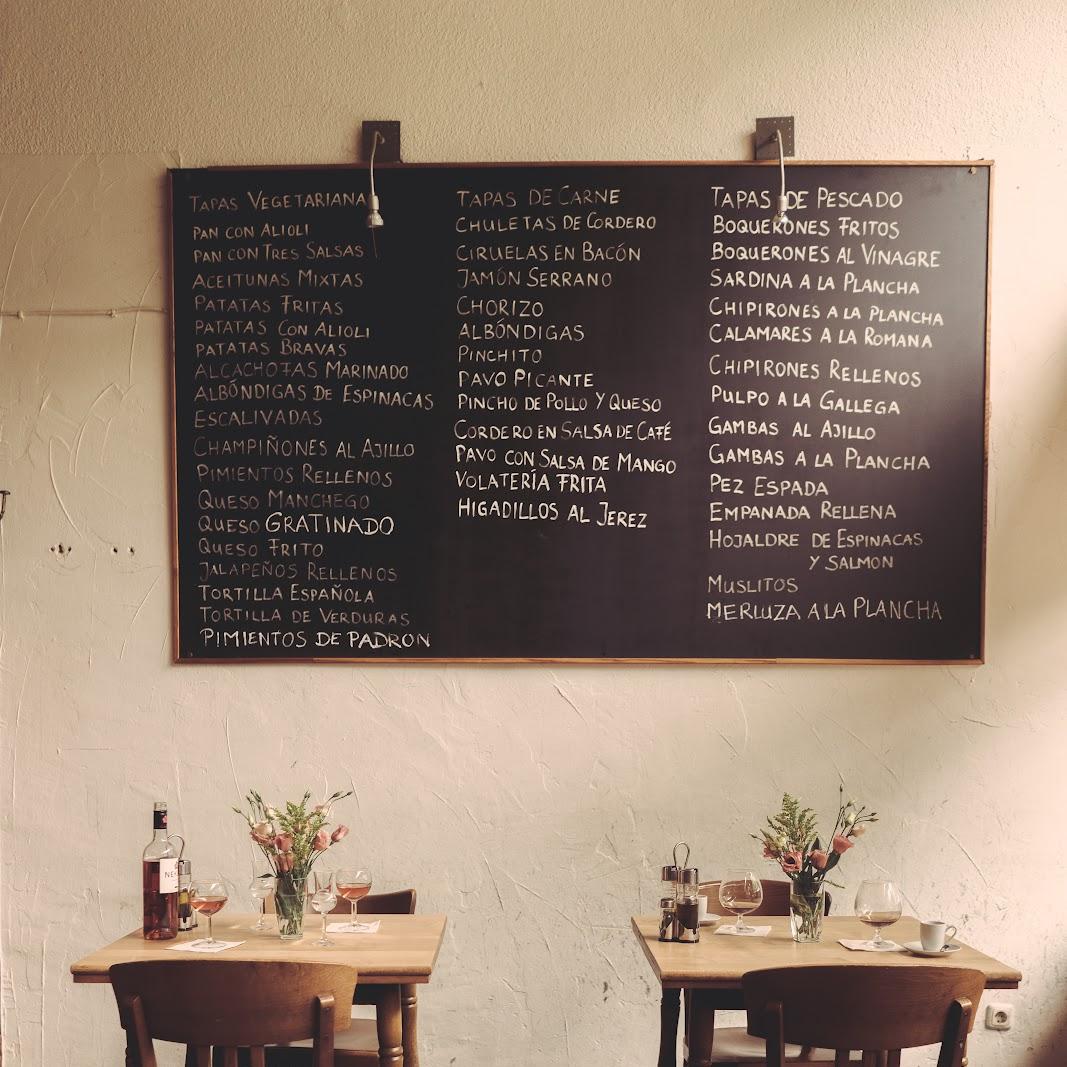 TAPAS VEGETARIANA
PAN CON ALIOLI
PAN CON TRES SALSAS
ACEITUNAS MIXTAS
PATATAS FRITAS
PATATAS CON ALIOLI
PATATAS BRAVAS
ALCACHOFAS MARINADO
ALBÓNDIGAS DE ESPINACAS
ESCALIVADAS
CHAMPIÑONES AL AJILLO
PIMIENTOS RELLENOS
QUESO MANCHEGO
QUESO GRATINADO
QUESO FRITO
JALAPEÑOS RELLENOS
TORTILLA ESPAÑOLA
TORTILLA DE VERDURAS
PIMIENTOS DE PADRON
TAPAS DE CARNE
CHULETAS DE CORDERO
CIRUELAS EN BACÓN
JAMÓN SERRANO
CHORIZO
ALBÓNDIGAS
PINCHITO
PAVO PICANTE
PINCHO DE POLLO Y QUESO
CORDERO EN SALSA DE CAFÉ
PAVO CON SALSA DE MANGO
VOLATERÍA FRITA
HIGADILLOS AL JEREZ
TAPAS DE PESCADO
BOQUERONES FRITOS
BOQUERONES AL VINAGRE
SARDINA A LA PLANCHA
CHIPIRONES A LA PLANCHA
CALAMARES A LA ROMANA
CHIPIRONES RELLENOS
PULPO A LA GALLEGA
GAMBAS AL AJILLO
GAMBAS A LA PLANCHA
PEZ ESPADA
EMPANADA RELLENA
HOJALDRE DE ESPINACAS
Y SALMON
MUSLITOS
MERLUZA A LA PLANCHA